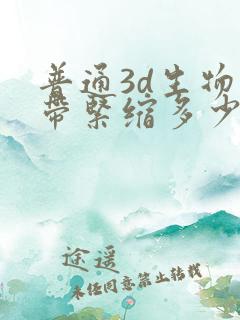 普通3d生物
带紧缩多少
途遥
未经同意禁止转载